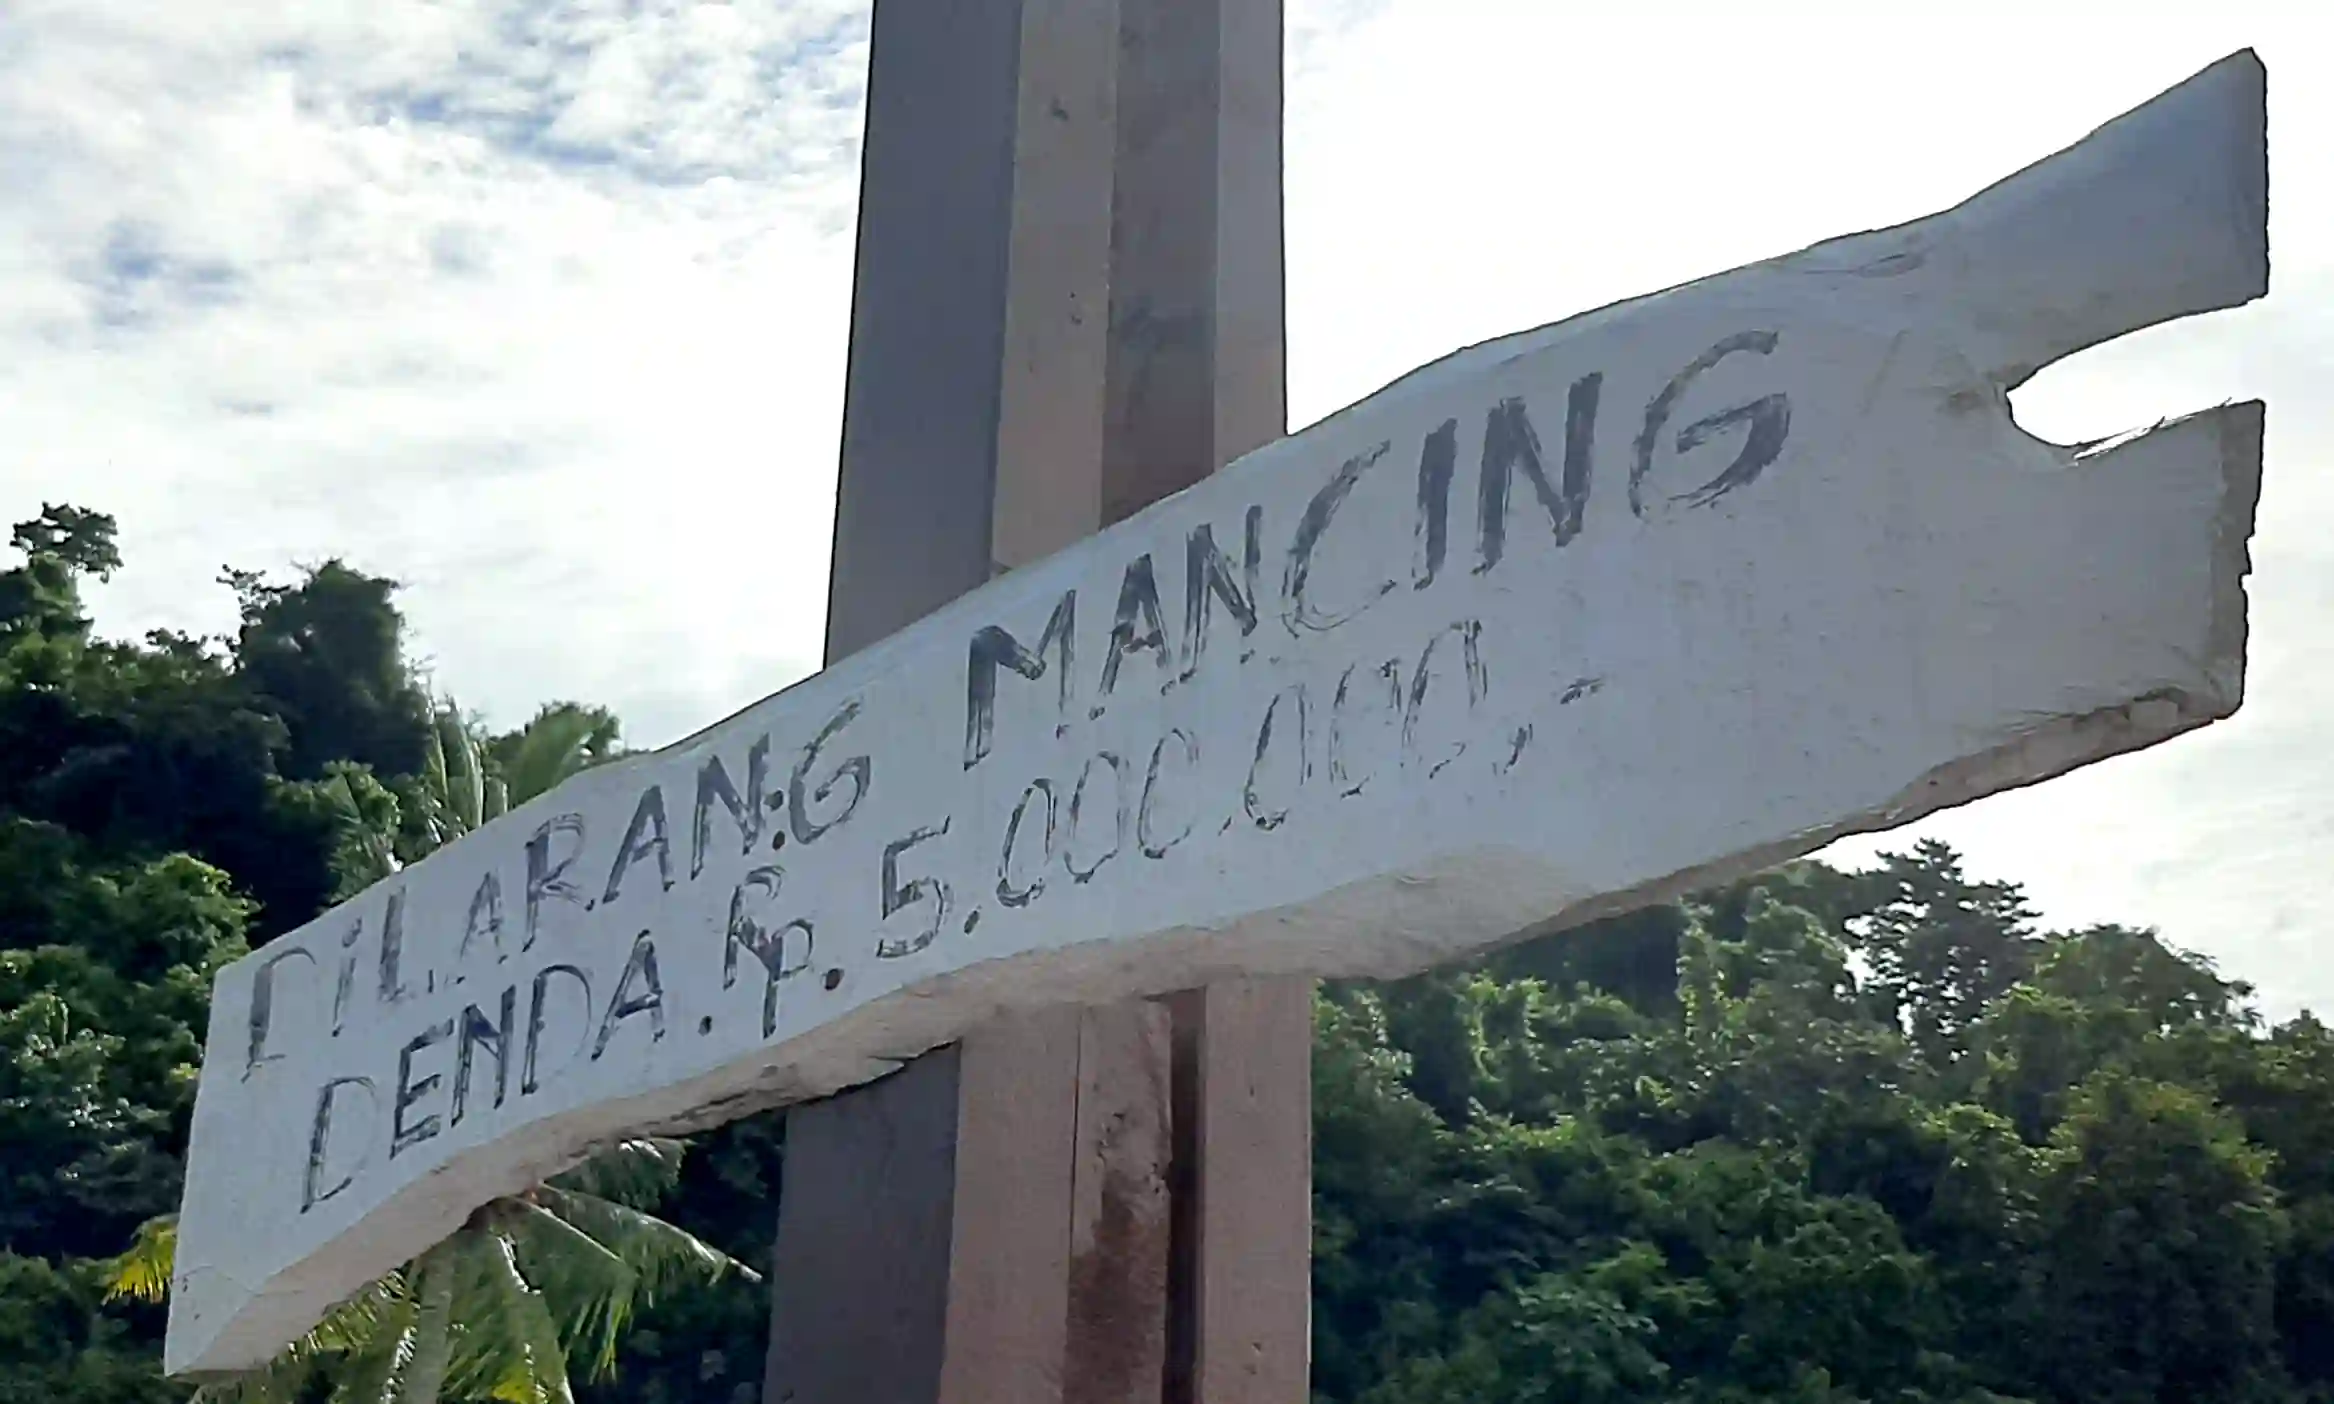 DiLARANG MANCING
DENDA. Rp. 5.000.000,-